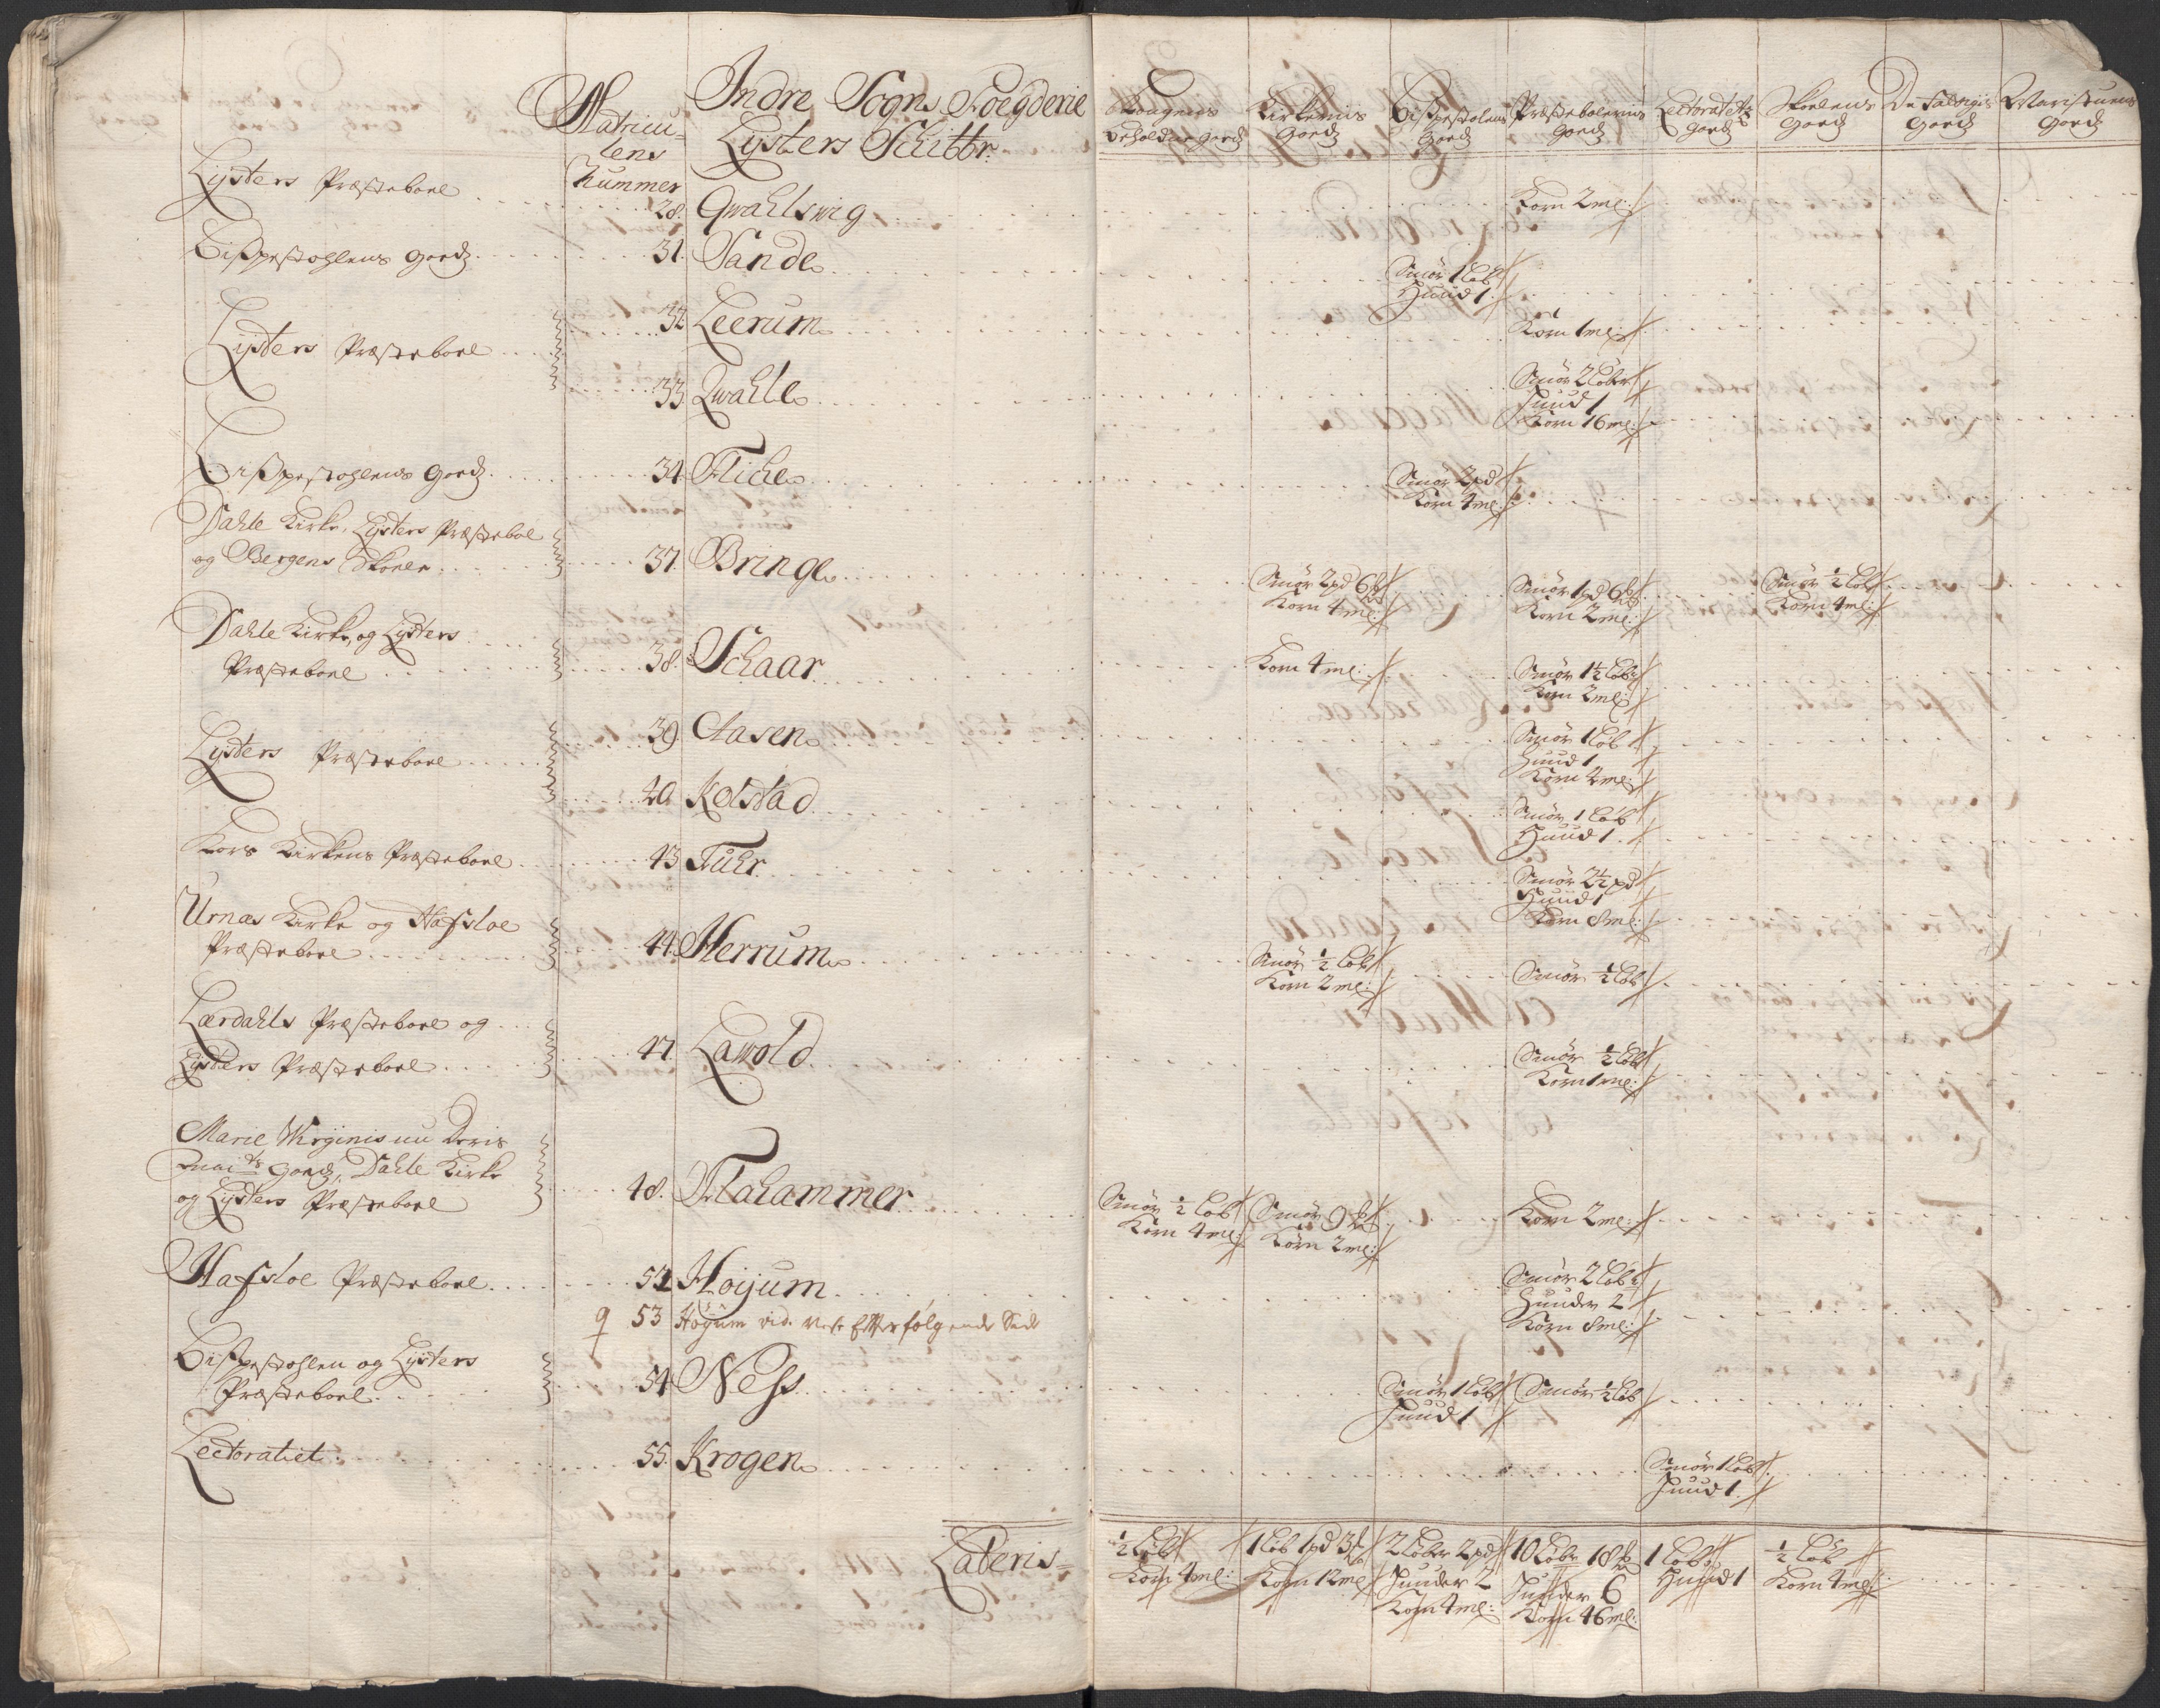 Matricu-
lens
Nummer
Indre Sogns Foegderie
Lysters Schibbr.
Kongens
beholdne Goedz
Kirkernis
Goedz
Bispestolens
Goedz
Præstebolernis
Goedz
Lectoratets
Goedz
Skoelens
Goedz
De Fattigis
Goedz
Waristuens
Goedz
Lysters Præsteboel 28. Qwahlswig Korn 2 ml:
Bispestohlens Goedz 31. Sande Smør 1 Løb
Huud 1.
Lysters Præsteboel 32. Leerum Korn 1 ml:
33. Qwahle Smør 2 Løber
Huud 1
Korn 16 ml:
Bispestohlens Goedz 34. Fliche Smør 2 pd
Korn 4 ml:
Dahle Kirke, Lysters Præsteboel
og Bergens Skoele 37. Bringe Smør 2 pd 6 Korn 4 ml: Smør 1 pd 6 Korn 2 ml: Smør ½ Løb Korn 4 ml:
Dahle Kirke, og Lysters
Præsteboel 38. Schaar Korn 4 ml: Smør 1½ Løb
Korn 2 ml:
Lysters Præsteboel 39 Aasen Smør 1 Løb
Huud 1
Korn 4 ml:
40. Kolstad Smør 1 Løb
Huud 1.
Kors Kirkens Præsteboel 43 Fuhr Smør 2½ pd
Huud 1
Korn 8 ml:
Urnæs Kirke og Hafsloe
Præsteboel 44. Herrum Smør ½ Løb
Korn 2 ml: Smør ½ Løb
Lærdahls Præsteboel og
Lysters Præsteboel 47. Lawold Smør ½ Løb
Korn 1 ml:
Marie Wirginis nu Deris
Goedz, Dahle Kirke
og Lysters Præsteboel 48. Flahammer Smør ½ Løb
Korn 4 ml: Smør 9
Korn 2 ml: Korn 2 ml:
Hafsloe Præsteboel 52 Hoijum Smør 2 Løb
Huuder 2
Korn 8 ml:
53 Høyum vid. Efterfølgende Side
Bispestohlen og Lysters
Præsteboel 54 Ness Smør 1 Løb
Huud 1 Smør ½ Løb
Lectoratiet 55. Krogen Smør 1 Løb
Huud 1.
Lateris
½ Løb
Korn 4 ml:
1 Løb 1 pd 3
Korn 12 ml
2 Løber 2 pd
Huuder 2
Korn 4 ml:
10 Løbr 18
Huuder 6
Korn 46 ml:
1 Løb
Huud 1
½ Løb
Korn 4 ml